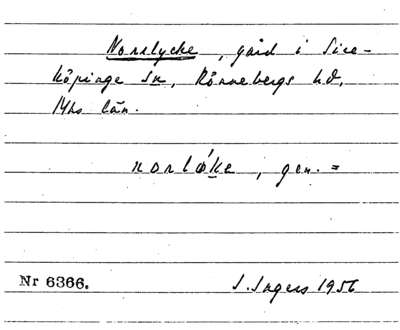 Norrlycke, gård i Sire-
köpinge sn, Rönnebergs hd,
Mhs län.
norlǿke, gen. =
Nr 6366.
S. Ingers 1956